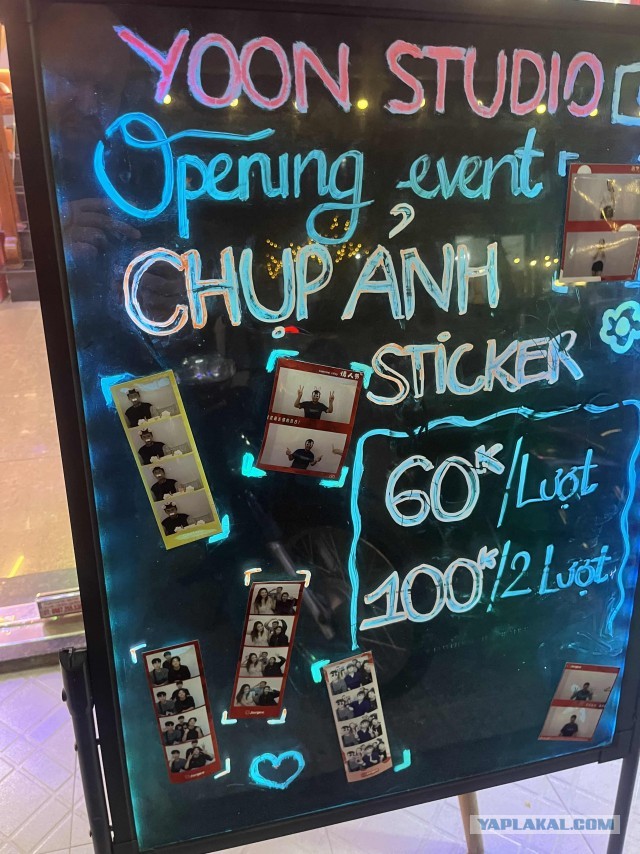 YOON STUDIO
Opening event
CHỤP ẢNH
STICKER
60K/Lượt
100K/2 Lượt
YAPLAKAL.COM